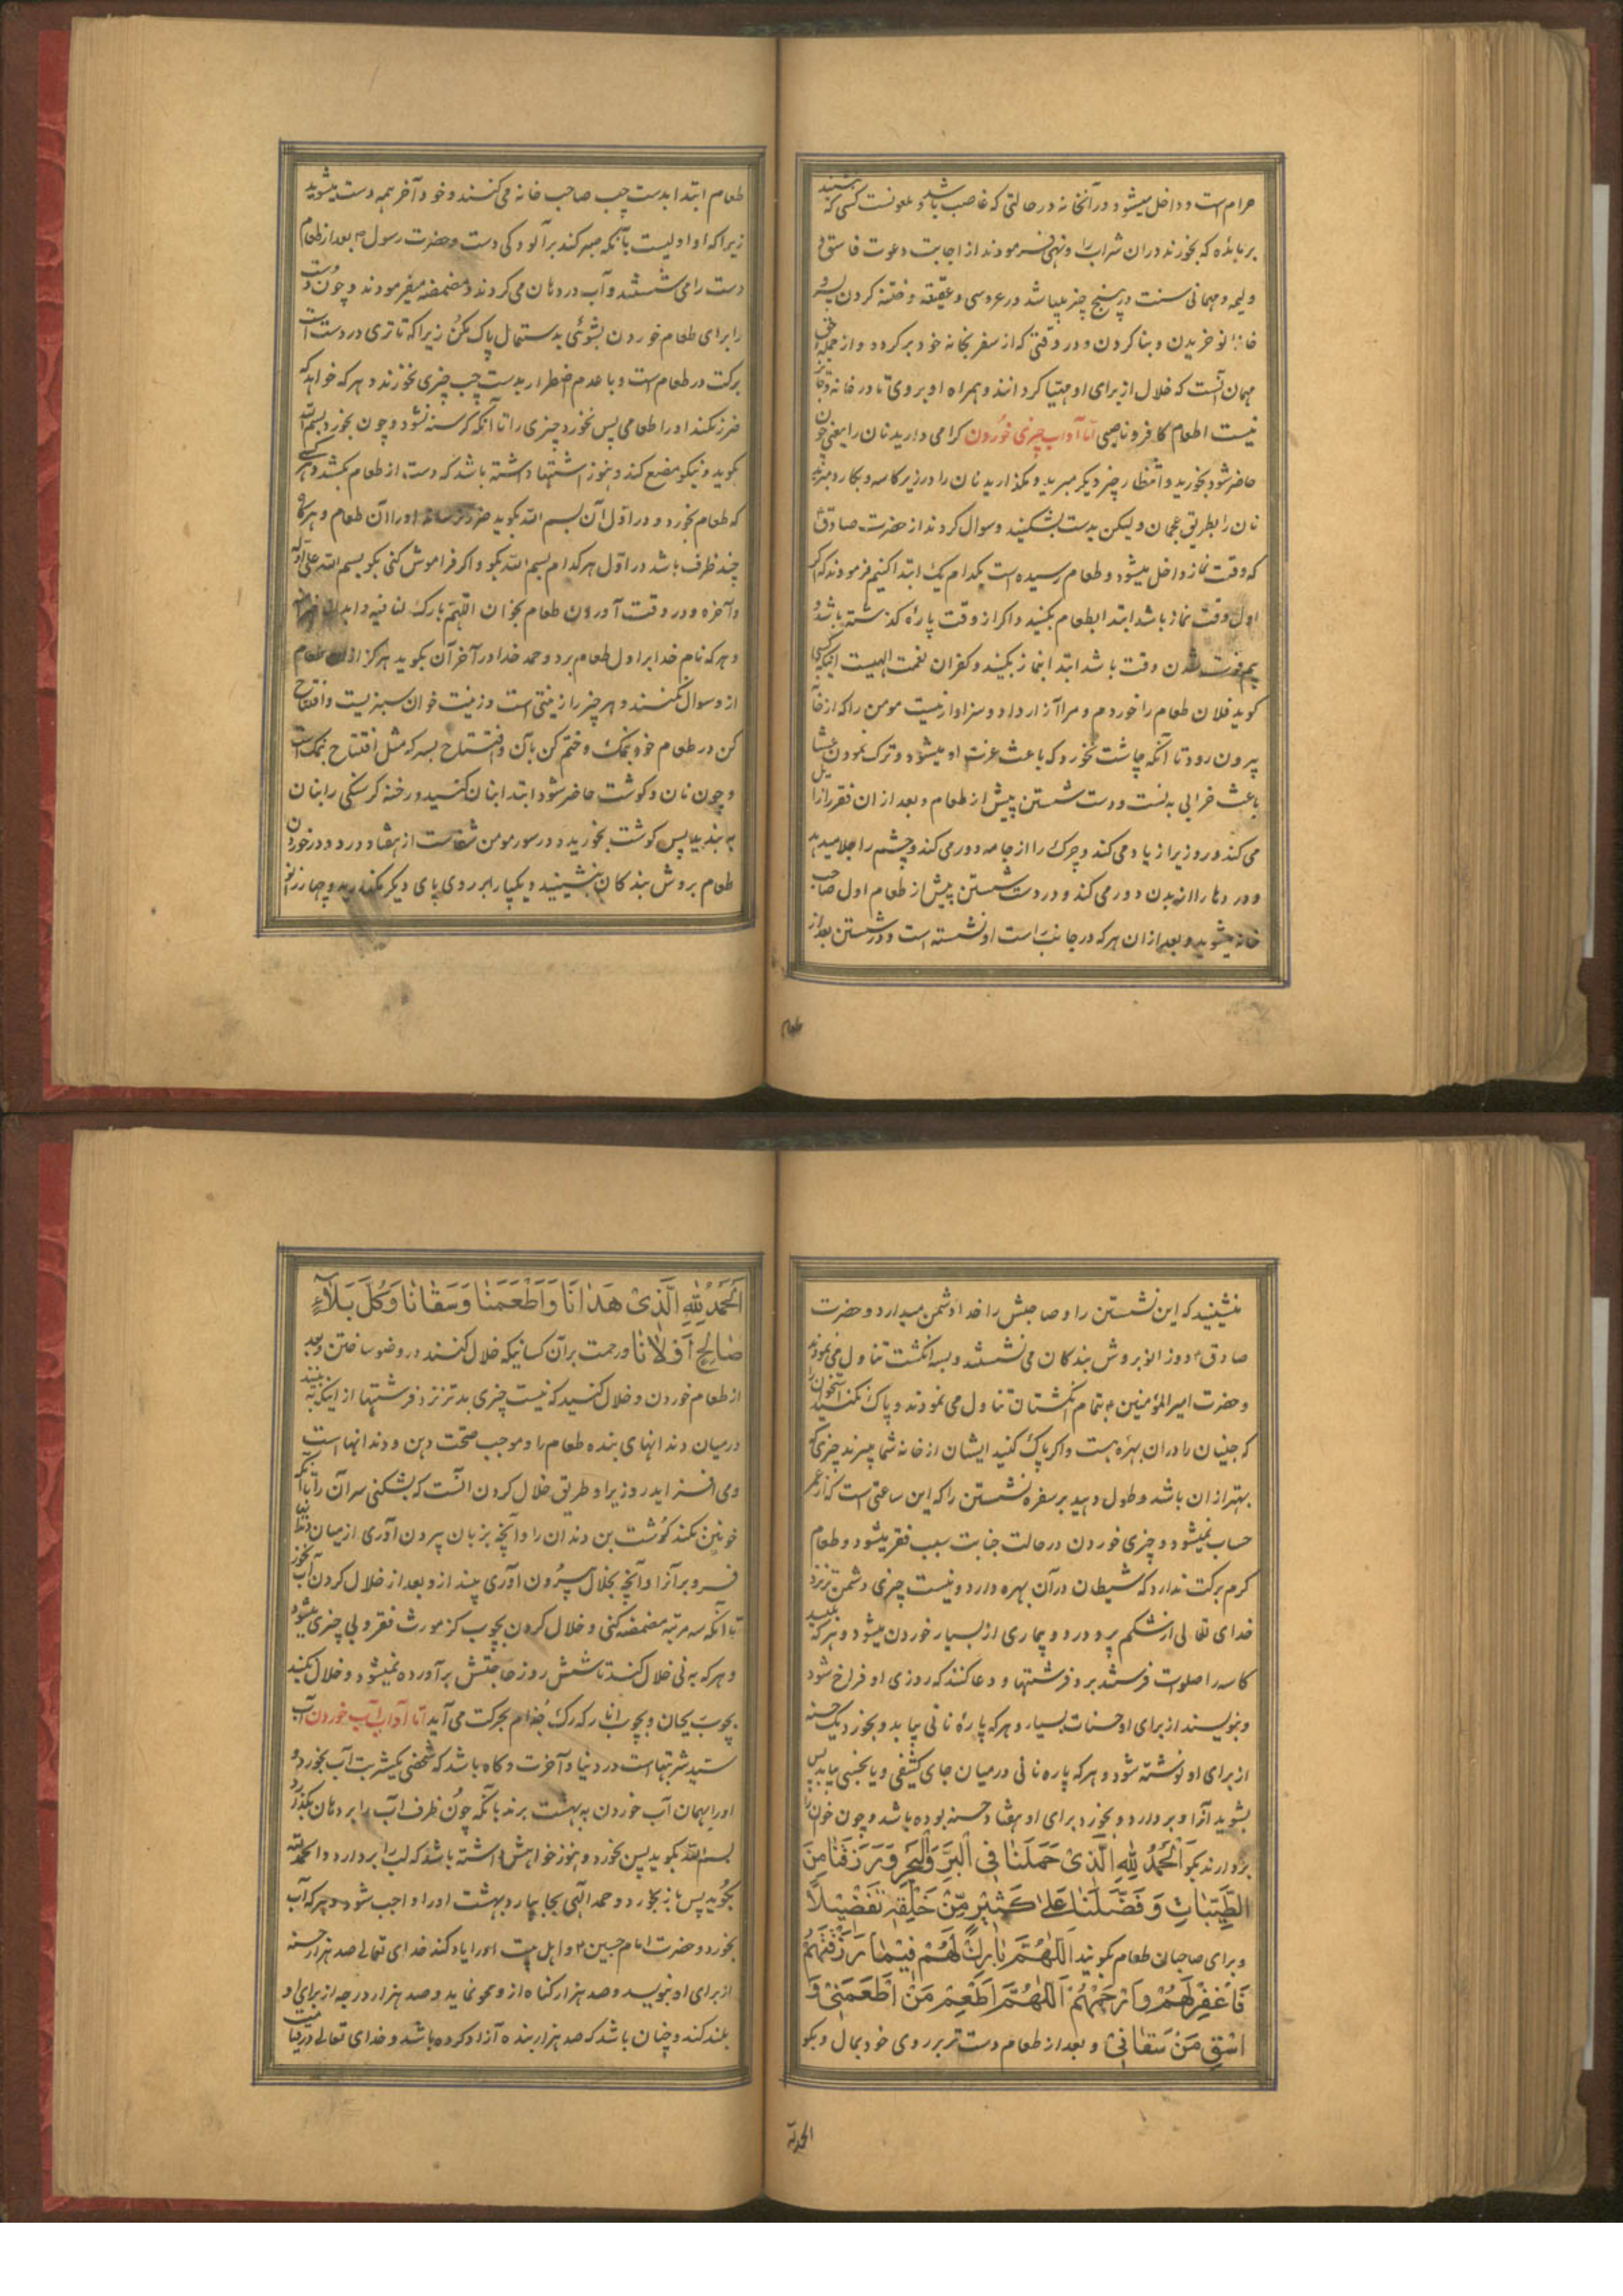 حرام است و داخل میشود در آنخانه در حالتی که غاصب باشد و ملعونست کسی که بنشیند
بر مایده که بخورند در ان شراب را و نهی فرمودند از اجابت دعوت فاسق و
ولیمه و مهمانی سنت در پنج چیز میباشد در عروسی و عقیقه و ختنه کردن پسر و
خانه نو خریدن و بنا کردن و در وقتی که از سفر بخانه خود بر کردد و از جمله حق
مهمان آنست که خلال از برای او مهیا کردانند و همراه او بروی تا در خانه و جایز
نیست اطعام کافر و ناصبی اما آداب چیزی خوردن کرامی دارید نان را یعنی چون
حاضر شود بخورید و انتظار چیز دیکر مبرید و مکذارید نان را در زیر کاسه و بکارد مبرید
نان را بطریق عجمان و لیکن بدست بشکنید و سوال کردند از حضرت صادق
که وقت نماز داخل میشود و طعام رسیده است بکدام یک ابتدا کنیم فرمودند که اکر
اول وقت نماز باشد ابتدا بطعام بکنید و اکر از وقت پارهٔ کذشته باشد و
بیم فوت شدن وقت باشد ابتدا بنماز بکنید و کفران نعمت الهیست اینکه کسی
کوید فلان طعام را خوردم و مرا آزار داد و سزاوار نیست مومن را که از خانه
بیرون رود تا آنکه چاشت بخورد که باعث عزت او میشود و ترک نمودن عشا
باعث خرابی بدنست و دست شستن پیش از طعام و بعد از ان فقر را زایل
می کند و روزی را زیاد می کند و چرک را از جامه دور می کند و چشم را جلا میدهد
و درد ها را از بدن دور می کند و در دست شستن پیش از طعام اول صاحب
خانه میشوید و بعد از ان هر که در جانب راست او نشسته است و در شستن بعد از
طعام
طعام ابتدا بدست چپ صاحب خانه می کنند و خود آخر همه دست میشوید
زیرا که او اولیست بآنکه صبر کند بر آلودکی دست و حضرت رسول ص بعد از طعام
دست را می شستند و آب در دهان می کردند و مضمضه میفرمودند و چون دست
را برای طعام خوردن بشوئی بدستمال پاک مکن زیرا که تا تری در دست است
برکت در طعام است و با عدم اضطرار بدست چپ چیزی نخورند و هر که خواهد که
ضرر نکند او را طعامی پس نخورد چیزی را تا آنکه کرسنه نشود و چون بخورد بسم الله
بکوید و نیکو مضغ کند و هنوز اشتها داشته باشد که دست از طعام بکشد و هر کسی
که طعام بخورد و در اول آن بسم الله بکوید ضرر نرساند او را آن طعام و هر کاه
چند ظرف باشد در اول هر کدام بسم الله بکو و اکر فراموش کنی بکو بسم الله علی اوله
و آخره و در وقت آوردن طعام بخوان اللهم بارک لنا فیه
و هر که نام خدا بر اول طعام برد و حمد خدا در آخر آن بکوید هرکز از ان طعام
از و سوال نکنند و هر چیز را زینتی است و زینت خوان سبزیست و افتتاح
کن در طعام خود بنمک و ختم کن بآن و افتتاح بسرکه مثل افتتاح بنمک است
و چون نان و کوشت حاضر شود ابتدا بنان کنید و رخنه کرسنکی را بنان
به بندید پس کوشت بخورید و در سور مومن شفاست از هفتاد درد و در خوردن
طعام بروش بندکان بنشینید و یکپا را بر روی پای دیکر مکذارید و چهار زانو
منشینید که این نشستن را و صاحبش را خدا دشمن میدارد و حضرت
صادق ع دوزانو بروش بندکان می نشستند و بسه انکشت تناول می نمودند
و حضرت امیر المؤمنین ع بتمام انکشتان تناول می نمودند و پاک نکنید استخوان را
که جنیان را در ان بهرهٔ هست و اکر پاک کنید ایشان از خانه شما میبرند چیزی که
بهتر از ان باشد و طول دهید بر سفره نشستن را که این ساعتی است که از عمر
حساب نمیشود و چیزی خوردن در حالت جنابت سبب فقر میشود و طعام
کرم برکت ندارد که شیطان در آن بهره دارد و نیست چیزی دشمن تر نزد
خدای تعالی از شکم پر و درد و بیماری از بسیار خوردن میشود و هر که بلیسد
کاسه را صلوات فرستند بر و فرشتها و دعا کنند که روزی او فراخ شود
و بنویسند از برای او حسنات بسیار و هر که پارهٔ نانی بیابد و بخورد یک حسنه
از برای او نوشته شود و هر که پاره نانی در میان جای کثیفی و یا نجسی بیابد پس
بشوید آنرا و بردارد و بخورد برای او هفتاد حسنه بوده باشد و چون خوان را
بردارند بکو اَلْحَمْدُ لِلّٰهِ الَّذِیْ حَمَلَنٰا فِی الْبَرِّ وَالْبَحْرِ وَرَزَقَنٰا مِنَ
الطَّیِّبٰاتِ وَ فَضَّلَنٰا عَلٰی کَثِیْرٍ مِّنْ خَلْقِهٖ تَفْضِیْلًا
و برای صاحبان طعام بکوئید اَللّٰهُمَّ بٰارِکْ لَهُمْ فِیْمٰا رَزَقْتَهُمْ
فَاغْفِرْ لَهُمْ وَارْحَمْهُمْ اَللّٰهُمَّ اَطْعِمْ مَنْ اَطْعَمَنِیْ وَ
اسْقِ مَنْ سَقٰانِیْ و بعد از طعام دست تر بر روی خود بمال و بکو
الحمد لله
اَلْحَمْدُ لِلّٰهِ الَّذِیْ هَدٰانَا وَ اَطْعَمَنٰا وَ سَقٰانٰا وَ کُلَّ بَلَآءٍ
صٰالِحٍ اَوْلٰانٰا و رحمت بر آن کسانیکه خلال کنند در وضو ساختن و بعد
از طعام خوردن و خلال کنید که نیست چیزی بد تر نزد فرشتها از اینکه به بینند
در میان دندانهای بنده طعام را و موجب صحت دهن و دندانهاست
و می افزاید در روزی را و طریق خلال کردن آنست که بشکنی سر آن را تا آنکه
خونین نکند کوشت بن دندان را و آنچه بزبان بیرون آوری از میان دندانها
فرو بر آنرا و آنچه بخلال بیرون آوری بینداز و بعد از خلال کردن آب نخور
تا آنکه سه مرتبه مضمضه کنی و خلال کردن بچوب کز مورث فقر و بی چیزی میشود
و هر که به نی خلال کند تا شش روز حاجتش بر آورده نمیشود و خلال مکنید
بچوب ریحان و بچوب انار که رک جذام بحرکت می آید اما آداب آب خوردن آب
سید شربتهاست در دنیا و آخرت و کاه باشد که شخصی یکشربت آب بخورد و
او را بهمان آب خوردن به بهشت برند بآنکه چون ظرف آب را بر دهان بکذارد
بسم الله بکوید پس بخورد و هنوز خواهش داشته باشد که لب را بردارد و الحمد لله
بکوید پس باز بخورد و حمد الٓهی بجا بیارد بهشت او را واجب شود و هر که آب
بخورد و حضرت امام حسین ع و اهل بیت او را یاد کند خدای تعالی صد هزار حسنه
از برای او بنویسد و صد هزار کناه از و محو نماید و صد هزار درجه از برای او
بلند کند و چنان باشد که صد هزار بنده آزاد کرده باشد و خدای تعالی در قیامت